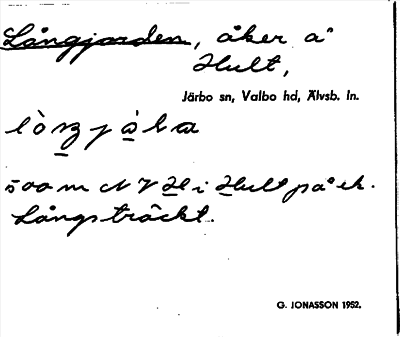 Långjorden, åker å
Hult,
Järbo sn, Valbo hd, Älvsb. ln.
500 m N V i Hult på ek.
Långsträckt.
G. JONASSON 1952.